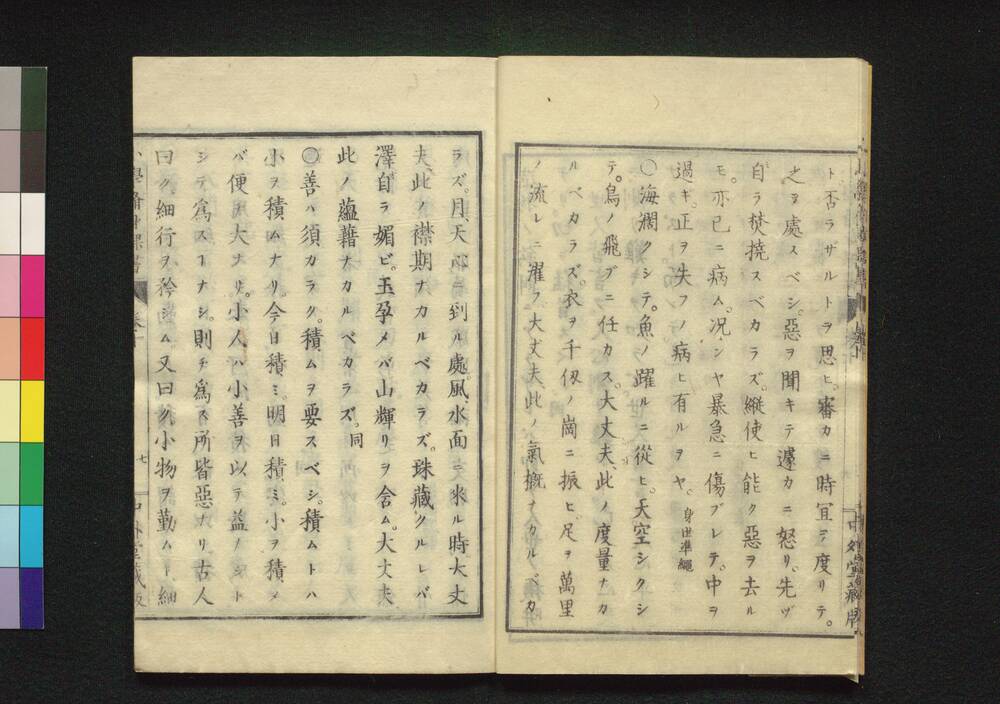 ト否ラサルトヲ思ヒ。審カニ時宜ヲ度リテ。
之ヲ處スベシ。惡ヲ聞キテ遽カニ怒リ。先ヅ
自ラ焚撓スベカラズ。縱使ヒ能ク惡ヲ去ル
モ。亦已ニ病ム。况ンヤ暴急ニ傷ブレテ。中ヲ
過ギ。正ヲ失フノ病ヒ有ルヲヤ。身世準繩
〇海濶クシテ。魚ノ躍ルニ從ヒ。天空シクシ
テ。鳥ノ飛ブニ任カス。大丈夫、此ノ度量ナカ
ルベカラズ。衣ヲ千仭ノ崗ニ振ヒ。足ヲ萬里
ノ流レニ濯フ。大丈夫、此ノ氣槪ナカルベカ
中外堂藏版
ラズ。月、天心ニ到ル處。風、水面ニ來ル時。大丈
夫、此ノ襟期ナカルベカラズ。珠藏クルレバ
澤自ラ媚ビ。玉孕メバ山輝リヲ含ム。大丈夫
此ノ蘊藉ナカルベカラズ。同
〇善ハ須カラク。積ムヲ要スベシ。積ムトハ
小ヲ積ムナリ。今日積ミ。明日積ミ。小ヲ積メ
バ便チ大ナリ。小人ハ小善ヲ以テ益ナシト
シテ爲スコナシ。則チ爲ス所皆惡ナリ。古人
曰ク。細行ヲ矜シム。又曰ク。小物ヲ勤ムト。細
七